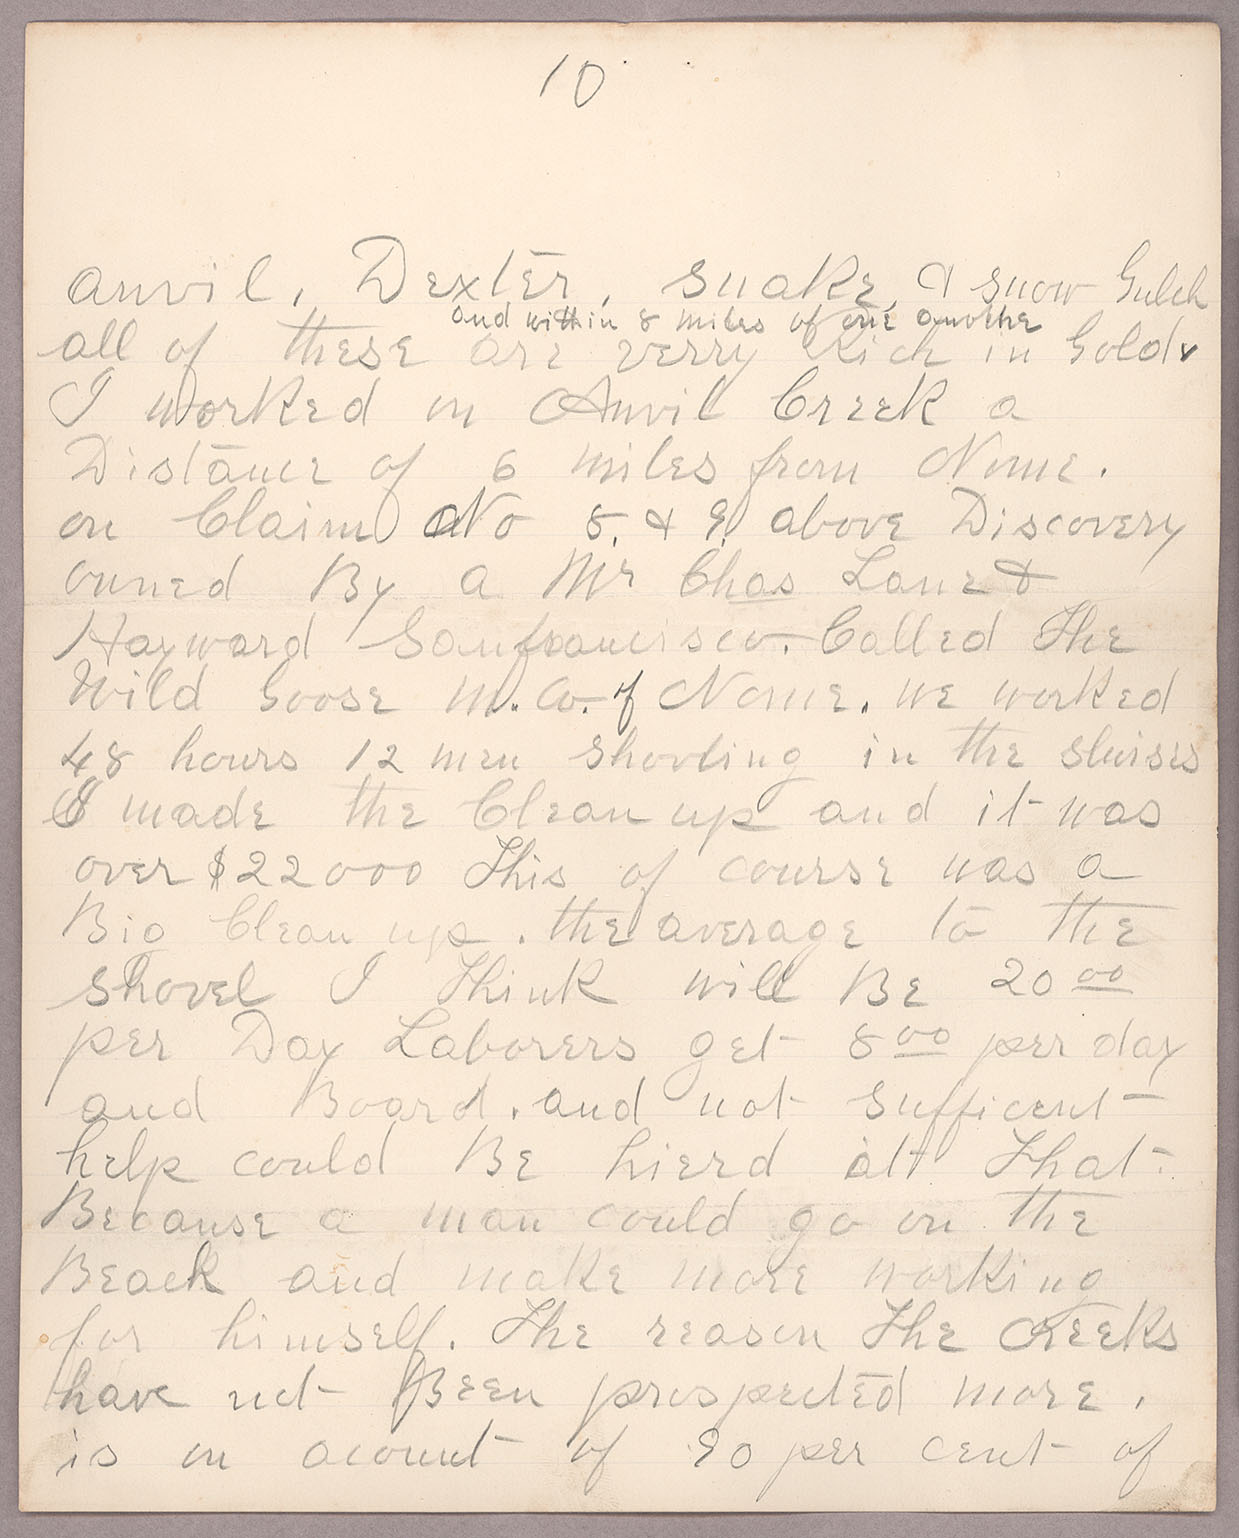 10
Anvil, Dexter, Snake, & Snow Gulch
and within 8 miles of one anothe
all of these are verry Rich in Gold
I worked on Anvil Creek a
Distance of 6 miles from Nome.
on Claim No 8, & 9, above Discovery
owned By a Mr Chas Lane &
Hayward Sanfrancisco. Called The
Wild Goose M. Co. of Nome. we worked
48 hours 12 men shovling in the sluises
I made the Clean up and it was
over $22000 This of course was a
Big Clean up. the average to the
shovel I Think will Be 20 00
per Day Laborers get 8 00 per day
and Board. and not sufficent
help could Be hierd at That.
Because a man could go on the
Beach and make more working
for himself. The reason The Creeks
have not Been prospected more.
is on acount of 90 per cent of